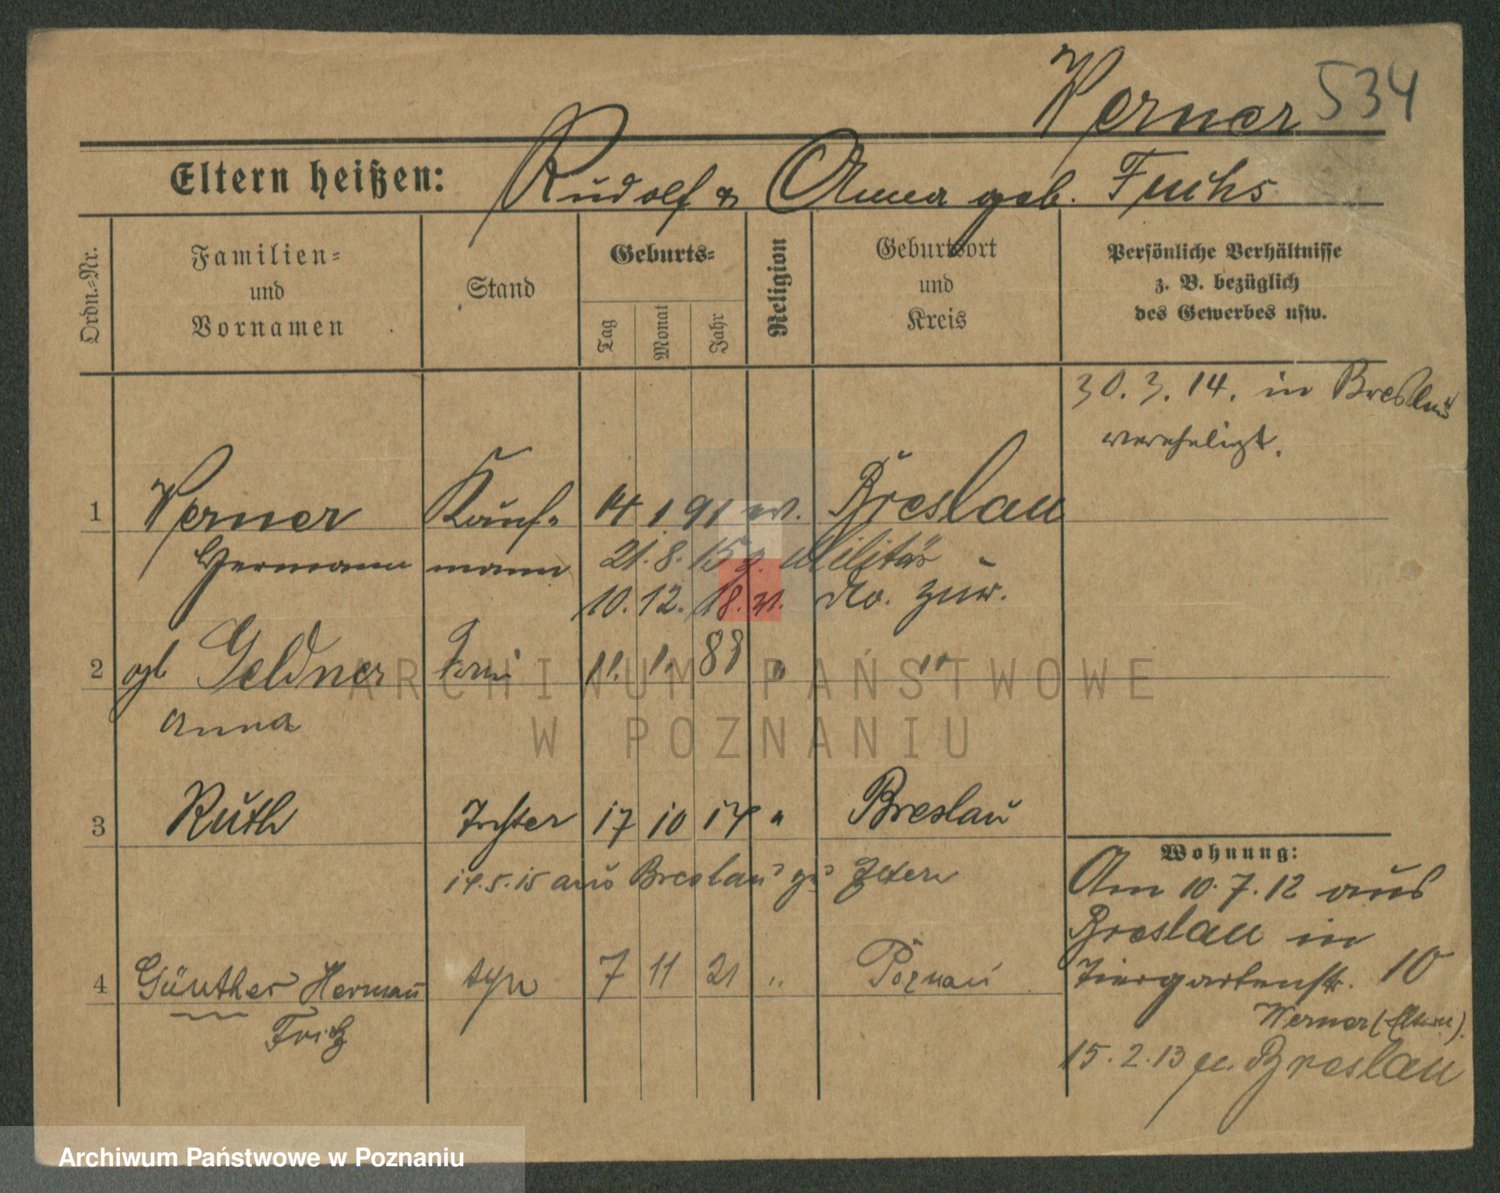 Werner 534
Eltern heißen: Rudolf & Anna geb. Fuchs
Ordn.-Nr.
Familien-
und
Vornamen
Stand
Geburts-
Tag
Monat
Jahr
Religion
Geburtsort
und
Kreis
Persönliche Verhältnisse
z. B. bezüglich
des Gewerbes usw.
30. 3. 14. in Breslau
vereheligt.
1 Werner Kauf- 14 1 91 ev. Breslau
Hermann mann 21. 8. 15 z. Militär
10. 12. 18. v. do. zur.
2 geb Geldner Frau 11. 1. 88 " "
Anna
3 Ruth Tochter 17 10 14 " Breslau
14. 5. 15 aus Breslau zu Eltern
4 Günther Herman 7 11 21 " Poznań
Fritz
Wohnung:
Am 10. 7. 12 aus
Breslau in
Tiergartenstr. 10
Werner (Eltern).
15. 2. 13 Breslau
ARCHIWUM PAŃSTWOWE
W POZNANIU
Archiwum Państwowe w Poznaniu